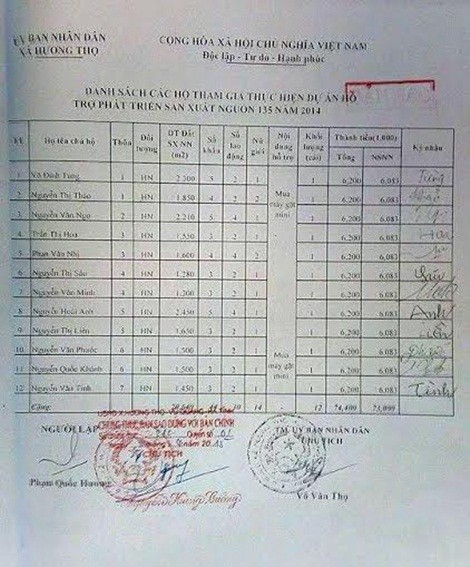 ỦY BAN NHÂN DÂN
XÃ HƯƠNG THỌ
CỘNG HÒA XÃ HỘI CHỦ NGHĨA VIỆT NAM
Độc lập - Tự do - Hạnh phúc
DANH SÁCH CÁC HỘ THAM GIA THỰC HIỆN DỰ ÁN HỖ
TRỢ PHÁT TRIỂN SẢN XUẤT NGUỒN 135 NĂM 2014
Họ tên chủ hộ Thôn Đối tượng DT Đất SX NN (m2) Số khẩu Số lao động Nữ giới Nội dung hỗ trợ Khối lượng (cái) Thành tiền(1.000) Tổng NSNN Ký nhận
1 Võ Đình Tung 1 HN 2.300 3 2 1 Mua máy gặt mini 1 6,200 6,083 Tung
2 Nguyễn Thị Thảo 1 HN 1.850 4 2 2 1 6,200 6,083
3 Nguyễn Văn Ngọ 2 HN 2.210 5 4 1 1 6,200 6,083
4 Trần Thị Hoa 3 HN 1.550 3 2 1 1 6,200 6,083 Hoa
5 Phan Văn Nhị 3 HN 1.600 4 4 2 1 6,200 6,083
6 Nguyễn Thị Sáu 4 HN 1.280 3 2 1 1 6,200 6,083 Sáu
7 Nguyễn Văn Minh 4 HN 1.300 3 2 1 1 6,200 6,083
8 Nguyễn Hoài Anh 5 HN 2.450 5 4 1 1 6,200 6,083 Anh
9 Nguyễn Thị Liên 5 HN 1.650 3 2 1 1 6,200 6,083
10 Nguyễn Văn Phước 6 HN 1.500 3 2 1 Mua máy gặt mini 1 6,200 6,083
11 Nguyễn Quốc Khánh 6 HN 1.500 3 2 1 1 6,200 6,083
12 Nguyễn Văn Tình 7 HN 1.450 3 2 1 1 6,200 6,083 Tình
Cộng: 14 12 74,400 73,000
NGƯỜI LẬP
CHỨNG THỰC BẢN SAO ĐÚNG VỚI BẢN CHÍNH
CHỦ TỊCH
TM ỦY BAN NHÂN DÂN
CHỦ TỊCH
Phạm Quốc Hương
Võ Văn Thọ